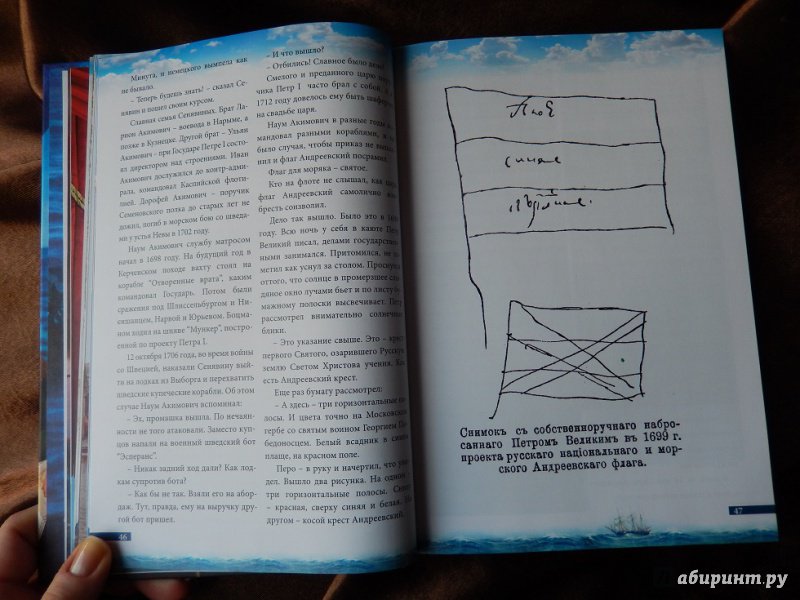 Минута, и немецкого вымпела как
не бывало.
– Теперь будешь знать! – сказал Се-
нявин и пошел своим курсом.
Славная семья Сенявиных. Брат Ла-
рион Акимович – воевода в Нарыме, а
позже в Кузнецке. Другой брат – Ульян
Акимович – при Государе Петре I состо-
ял директором над строениями. Иван
Акимович дослужился до контр-адми-
рала, командовал Каспийской флоти-
лией. Дорофей Акимович – поручик
Семеновского полка до старых лет не
дожил, погиб в морском бою со шведа-
ми у устья Невы в 1702 году.
Наум Акимович службу матросом
начал в 1698 году. На будущий год в
Керчевском походе вахту стоял на
корабле "Отворенные врата", каким
командовал Государь. Потом были
сражения под Шлиссельбургом и Ни-
еншанцем, Нарвой и Юрьевом. Боцма-
ном ходил на шняве "Мункер", построен-
ной по проекту Петра I.
12 октября 1706 года, во время войны
со Швецией, наказали Сенявину вый-
ти на лодках из Выборга и перехватить
шведские купеческие корабли. Об этом
случае Наум Акимович вспоминал:
– Эх, промашка вышла. По нечаян-
ности не того атаковали. Заместо куп-
цов напали на военный шведский бот
"Эсперанс".
– Никак задний ход дали? Как лод-
кам супротив бота?
– Как бы не так. Взяли его на абор-
даж. Тут, правда, ему на выручку дру-
гой бот пришел.
46
– И что вышло?
– Отбились! Славное было дело!
Смелого и преданного царю
чика Петр I часто брал с собой, а
1712 году довелось ему быть шафером
на свадьбе царя.
Наум Акимович в разные годы
мандовал разными кораблями, и
было случая, чтобы приказ не выпол-
нил и флаг Андреевский посрамил.
Флаг для моряка – святое.
Кто на флоте не слышал, как
флаг Андреевский самолично
бресть соизволил.
Дело так вышло. Было это в
году. Всю ночь у себя в каюте Петр
Великий писал, делами государствен-
ными занимался. Притомился, не за-
метил как уснул за столом. Проснулся
оттого, что солнце в промерзшее слю-
дяное окно лучами бьет и по листу бу-
мажному полоски высвечивает. Петр
рассмотрел внимательно солнечные
блики.
– Это указание свыше. Это – крест
первого Святого, озарившего Русскую
землю Светом Христова учения.
есть Андреевский крест.
Еще раз бумагу рассмотрел:
– А здесь – три горизонтальные по-
лосы. И цвета точно на Московском
гербе со святым воином Георгием По-
бедоносцем. Белый всадник в синем
плаще, на красном поле.
Перо – в руку и начертил, что уви-
дел. Вышло два рисунка. На одном –
три горизонтальные полосы. Снизу
– красная, сверху синяя и белая. На
другом – косой крест Андреевский.
синее
Снимокъ съ собственноручнаго набро-
саннаго Петромъ Великимъ въ 1699 г.
проекта русскаго національнаго и мор-
ского Андреевскаго флага.
47
Лабиринт.ру